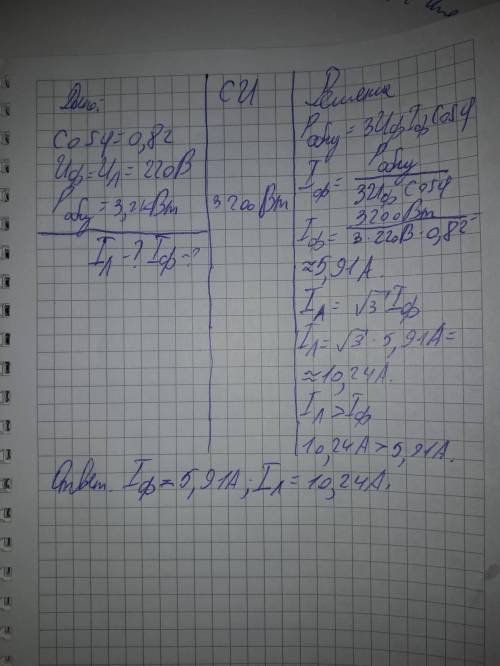 Дано:
cosφ=0,82
Uф=Uл=220В
Pобщ=3,2кВт
Iл-? Iф-?
СИ
3200Вт
Решение
Pобщ=3UфIфcosφ
Iф= Pобщ
3Uф cosφ
Iф= 3200Вт =
3·220В·0,82
≈5,91А.
Iл=√3 Iф
Iл=√3·5,91А=
≈10,24А.
Iл>Iф
10,24А>5,91А.
Ответ. Iф=5,91А; Iл=10,24А.